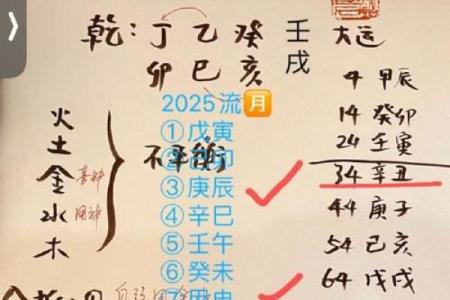 乾：丁乙癸壬 大运
卯巳亥戌
4 甲辰
14 癸卯
24 壬寅
34 辛丑
44 庚子
54 己亥
64 戊戌
火
土
金 喜神
水 用神
木
不平衡
2025流月
①戊寅
②己卯
③庚辰
④辛巳
⑤壬午
⑥癸未